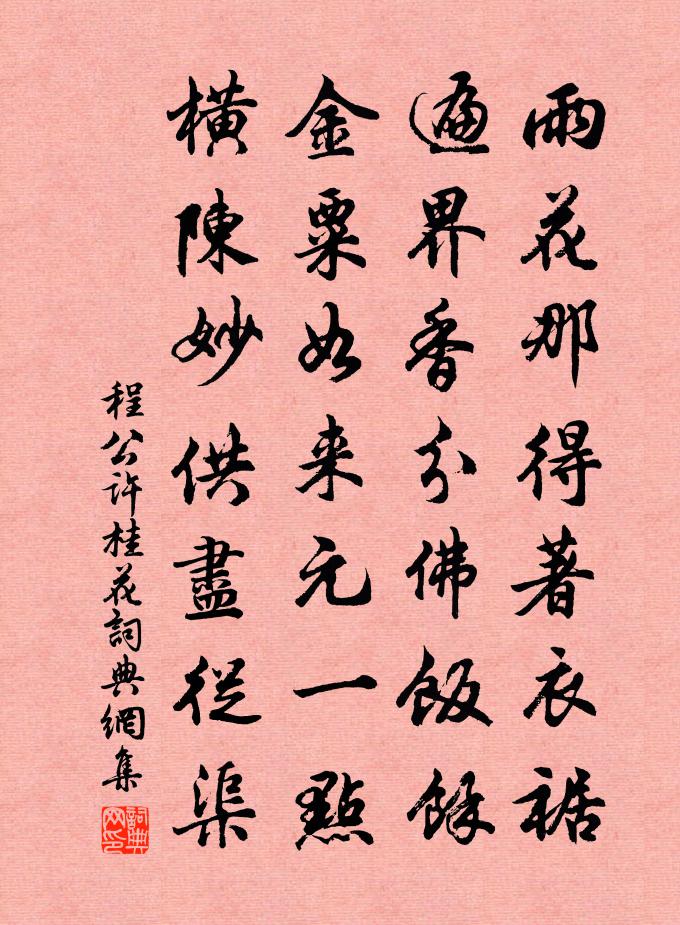 雨花那得著衣裾
遍界香分佛飯餘
金粟如来元一點
横陳妙供盡從渠
程公許桂花詞典網集
詞典网印